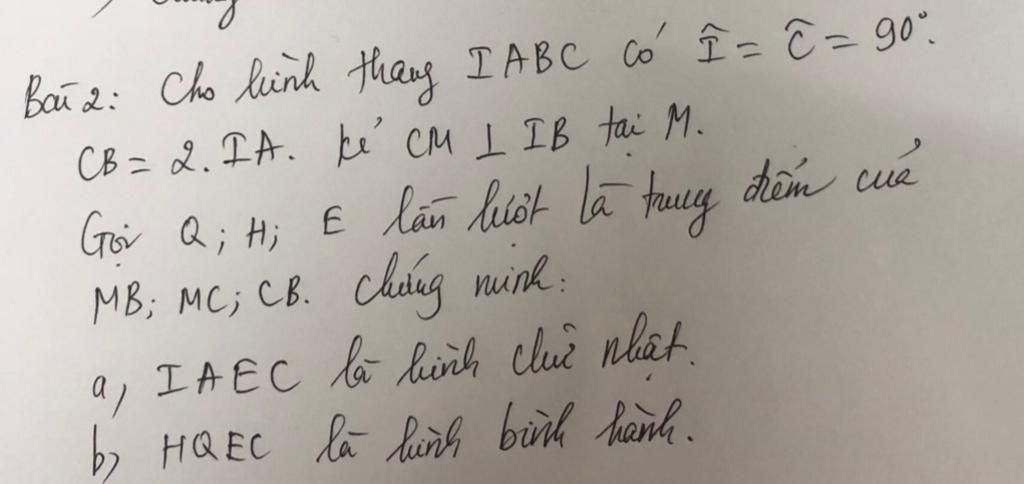 Bài 2: Cho hình thang IABC có Î = Ĉ = 90°.
CB = 2.IA. kẻ CM ⊥ IB tại M.
Gọi Q; H; E lần lượt là trung điểm của
MB; MC; CB. Chứng minh:
a, IAEC là hình chữ nhật.
b, HQEC là hình bình hành.